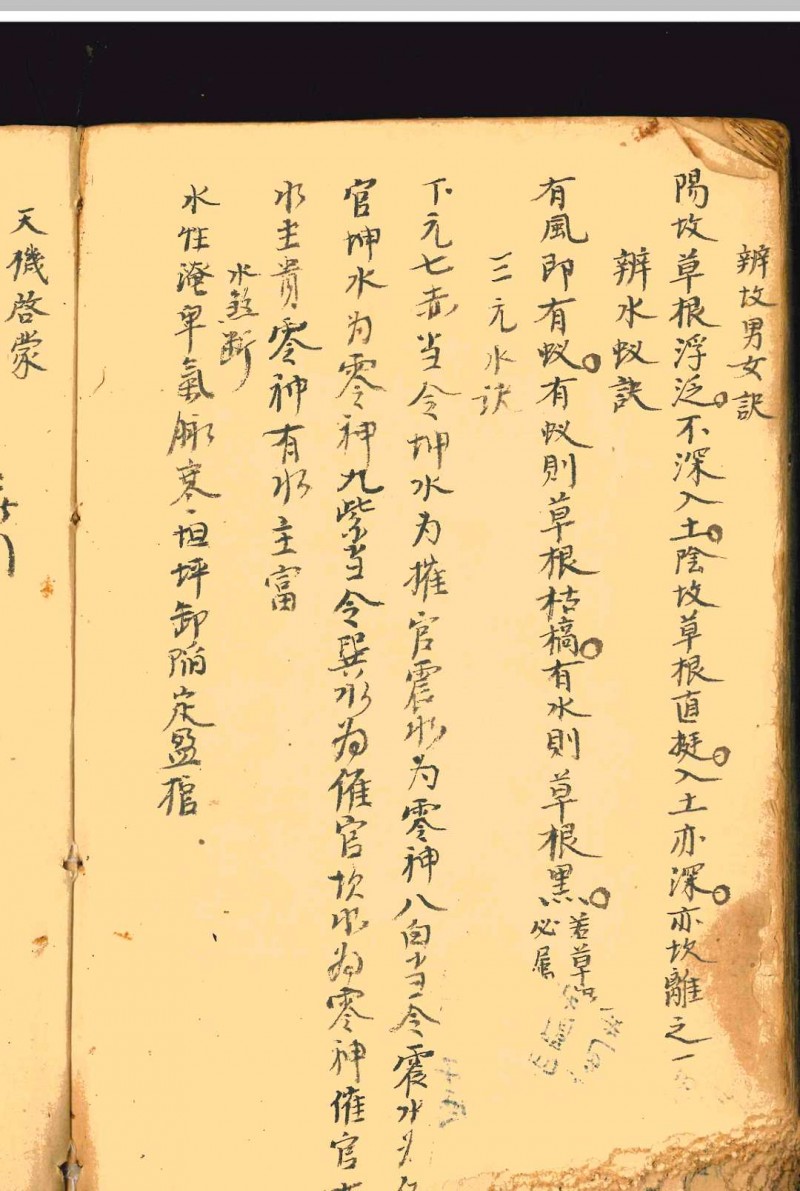 辨坟男女訣
陽坟草根浮泛不深入土陰坟草根直挺入土亦深亦坎離之一
辨水蚁訣
有風即有蚁有蚁則草根枯槁有水則草根黑若草
必屬
三元水訣
下元七赤当令坤水为摧官震水为零神八白当令震水为
官坤水为零神九紫当令巽水为催官坎水为零神催官
水主贵零神有水主富
水煞断
水性淹卑氣脉寒坦坪卸陷定盈棺
天機啓蒙